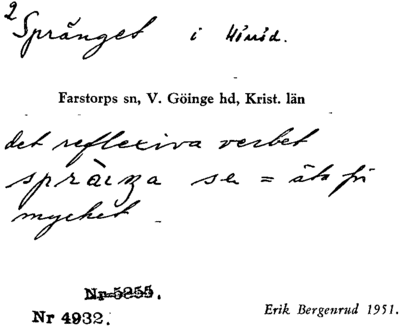 2
Språnget i
Farstorps sn, V. Göinge hd, Krist. län
det reflexiva verbet
se = äta för
mycket
Nr 5855.
Nr 4932.
Erik Bergenrud 1951.